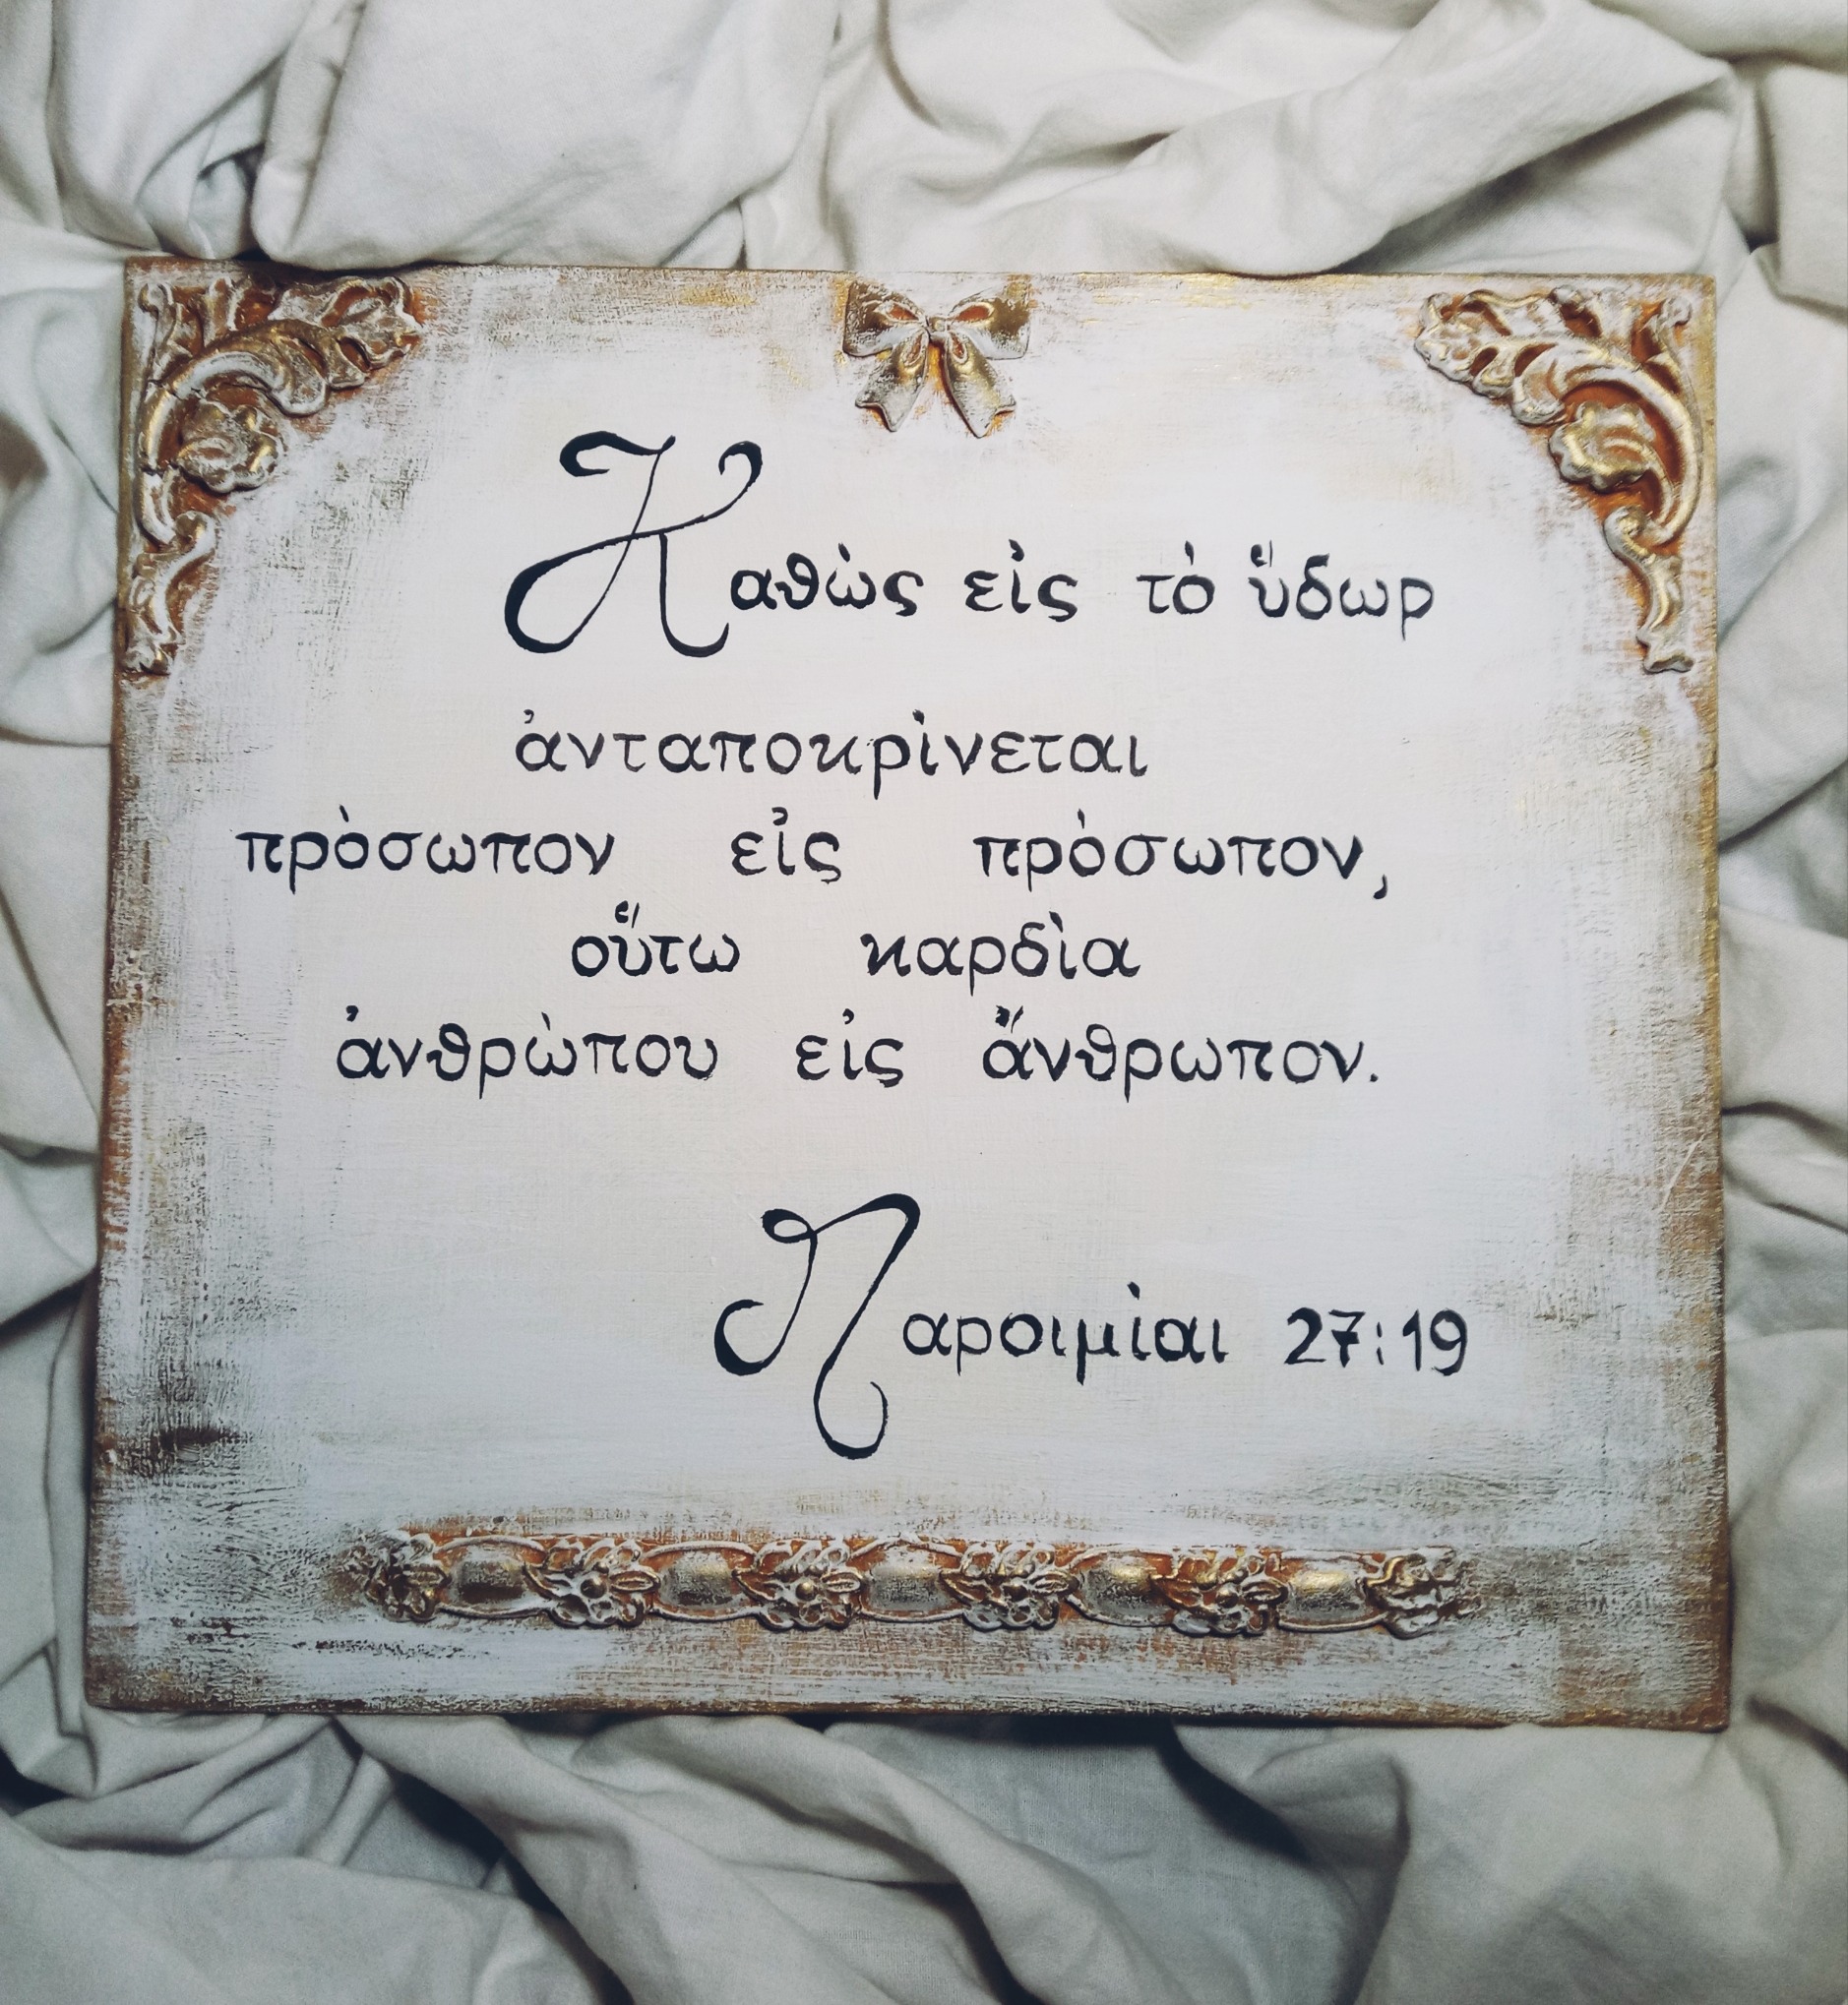 Καθὼς εἰς τὸ ὕδωρ
ἀνταποκρὶνεται
πρὸσωπον εἰς πρὸσωπον,
οὕτω καρδὶα
ἀνθρὼπου εἰς ἄνθρωπον.
Παροιμὶαι 27:19